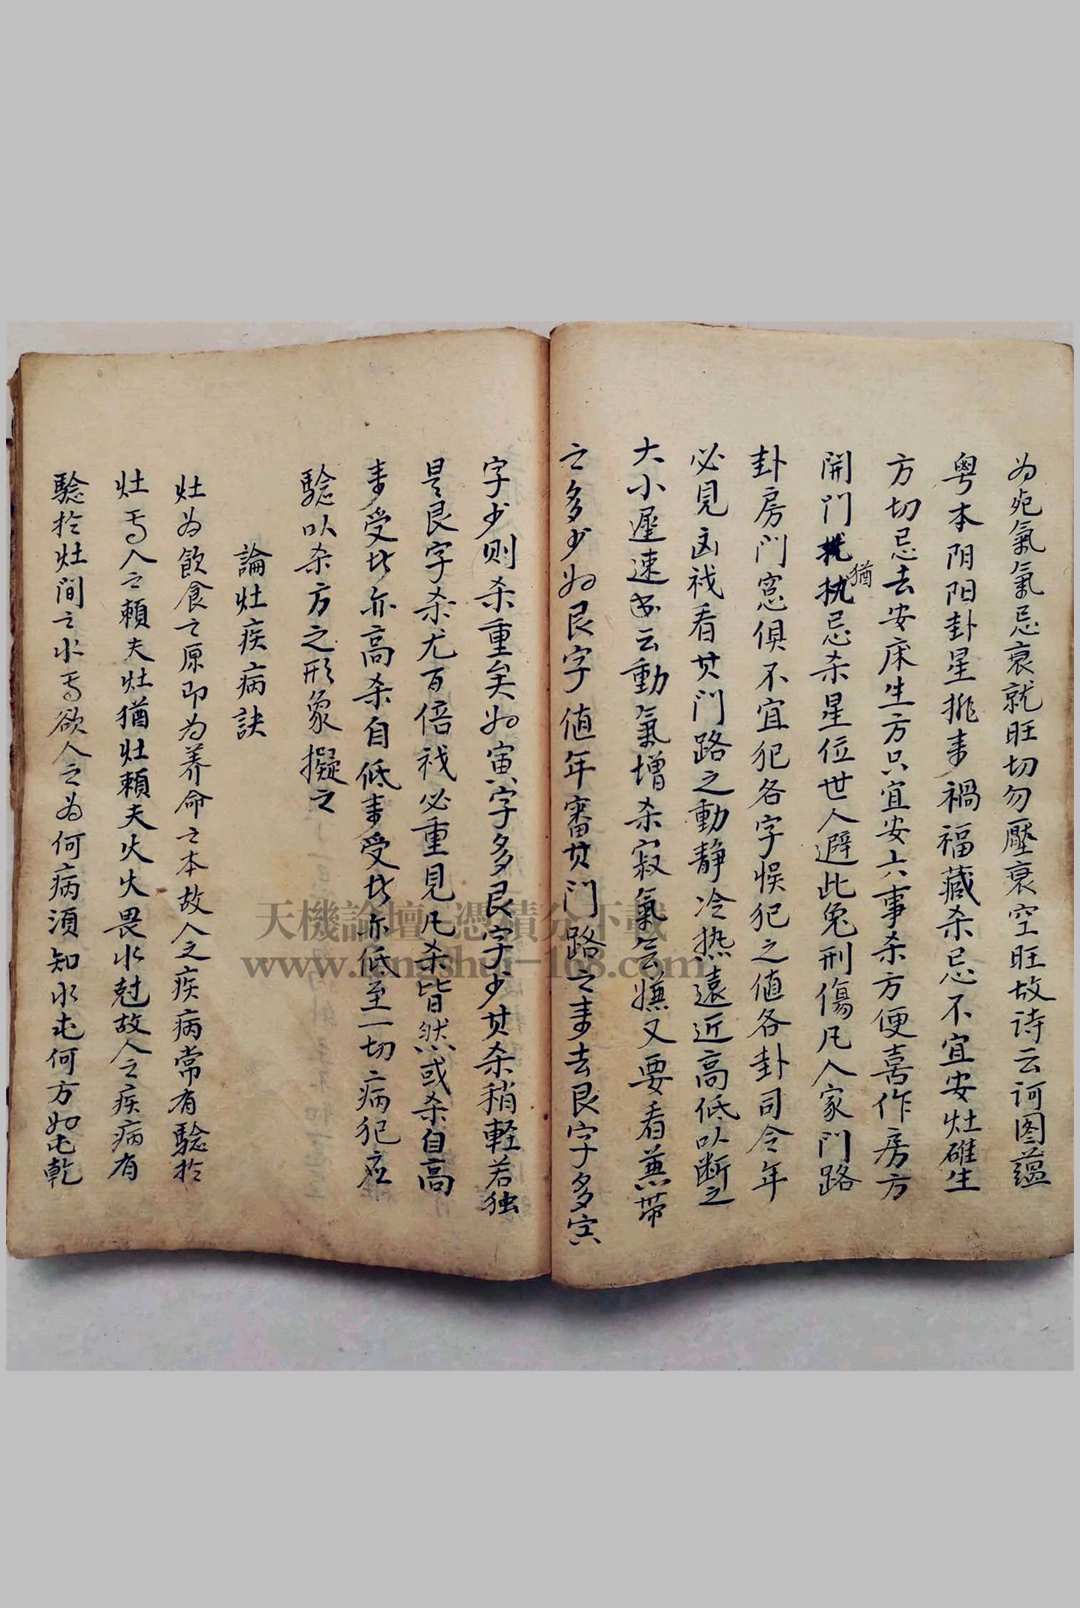 为死氣氣忌衰就旺切勿壓衰空旺故诗云河图蕴
粤本阴阳卦星排来禍福藏杀忌不宜安灶碓生
方切忌去安床生方只宜安六事杀方便喜作房方
開門犹执忌杀星位世人避此免刑傷凡人家門路
猶
卦房門窓俱不宜犯各字悮犯之值各卦司令年
必見凶祸看其門路之動静冷热遠近高低以断之
大小遲速书云動氣增杀寂氣会嫌又要看兼带
之多少如艮字值年審其门路之来去艮字多寅
字少则杀重矣如寅字多艮字少其杀稍軽若独
是艮字杀尤百倍祸必重見凡杀皆然或杀自高
来受此亦高杀自低来受此亦低至一切病犯应
驗以杀方之形象擬之
論灶疾病訣
灶为飲食之原即为养命之本故人之疾病常有驗扵
灶焉人之賴夫灶猶灶賴夫火火畏水尅故人之疾病有
驗扵灶间之水焉欲人之为何病須知水屯何方如屯乾
天機論壇-憑積分下載
www.fengshui-168.com